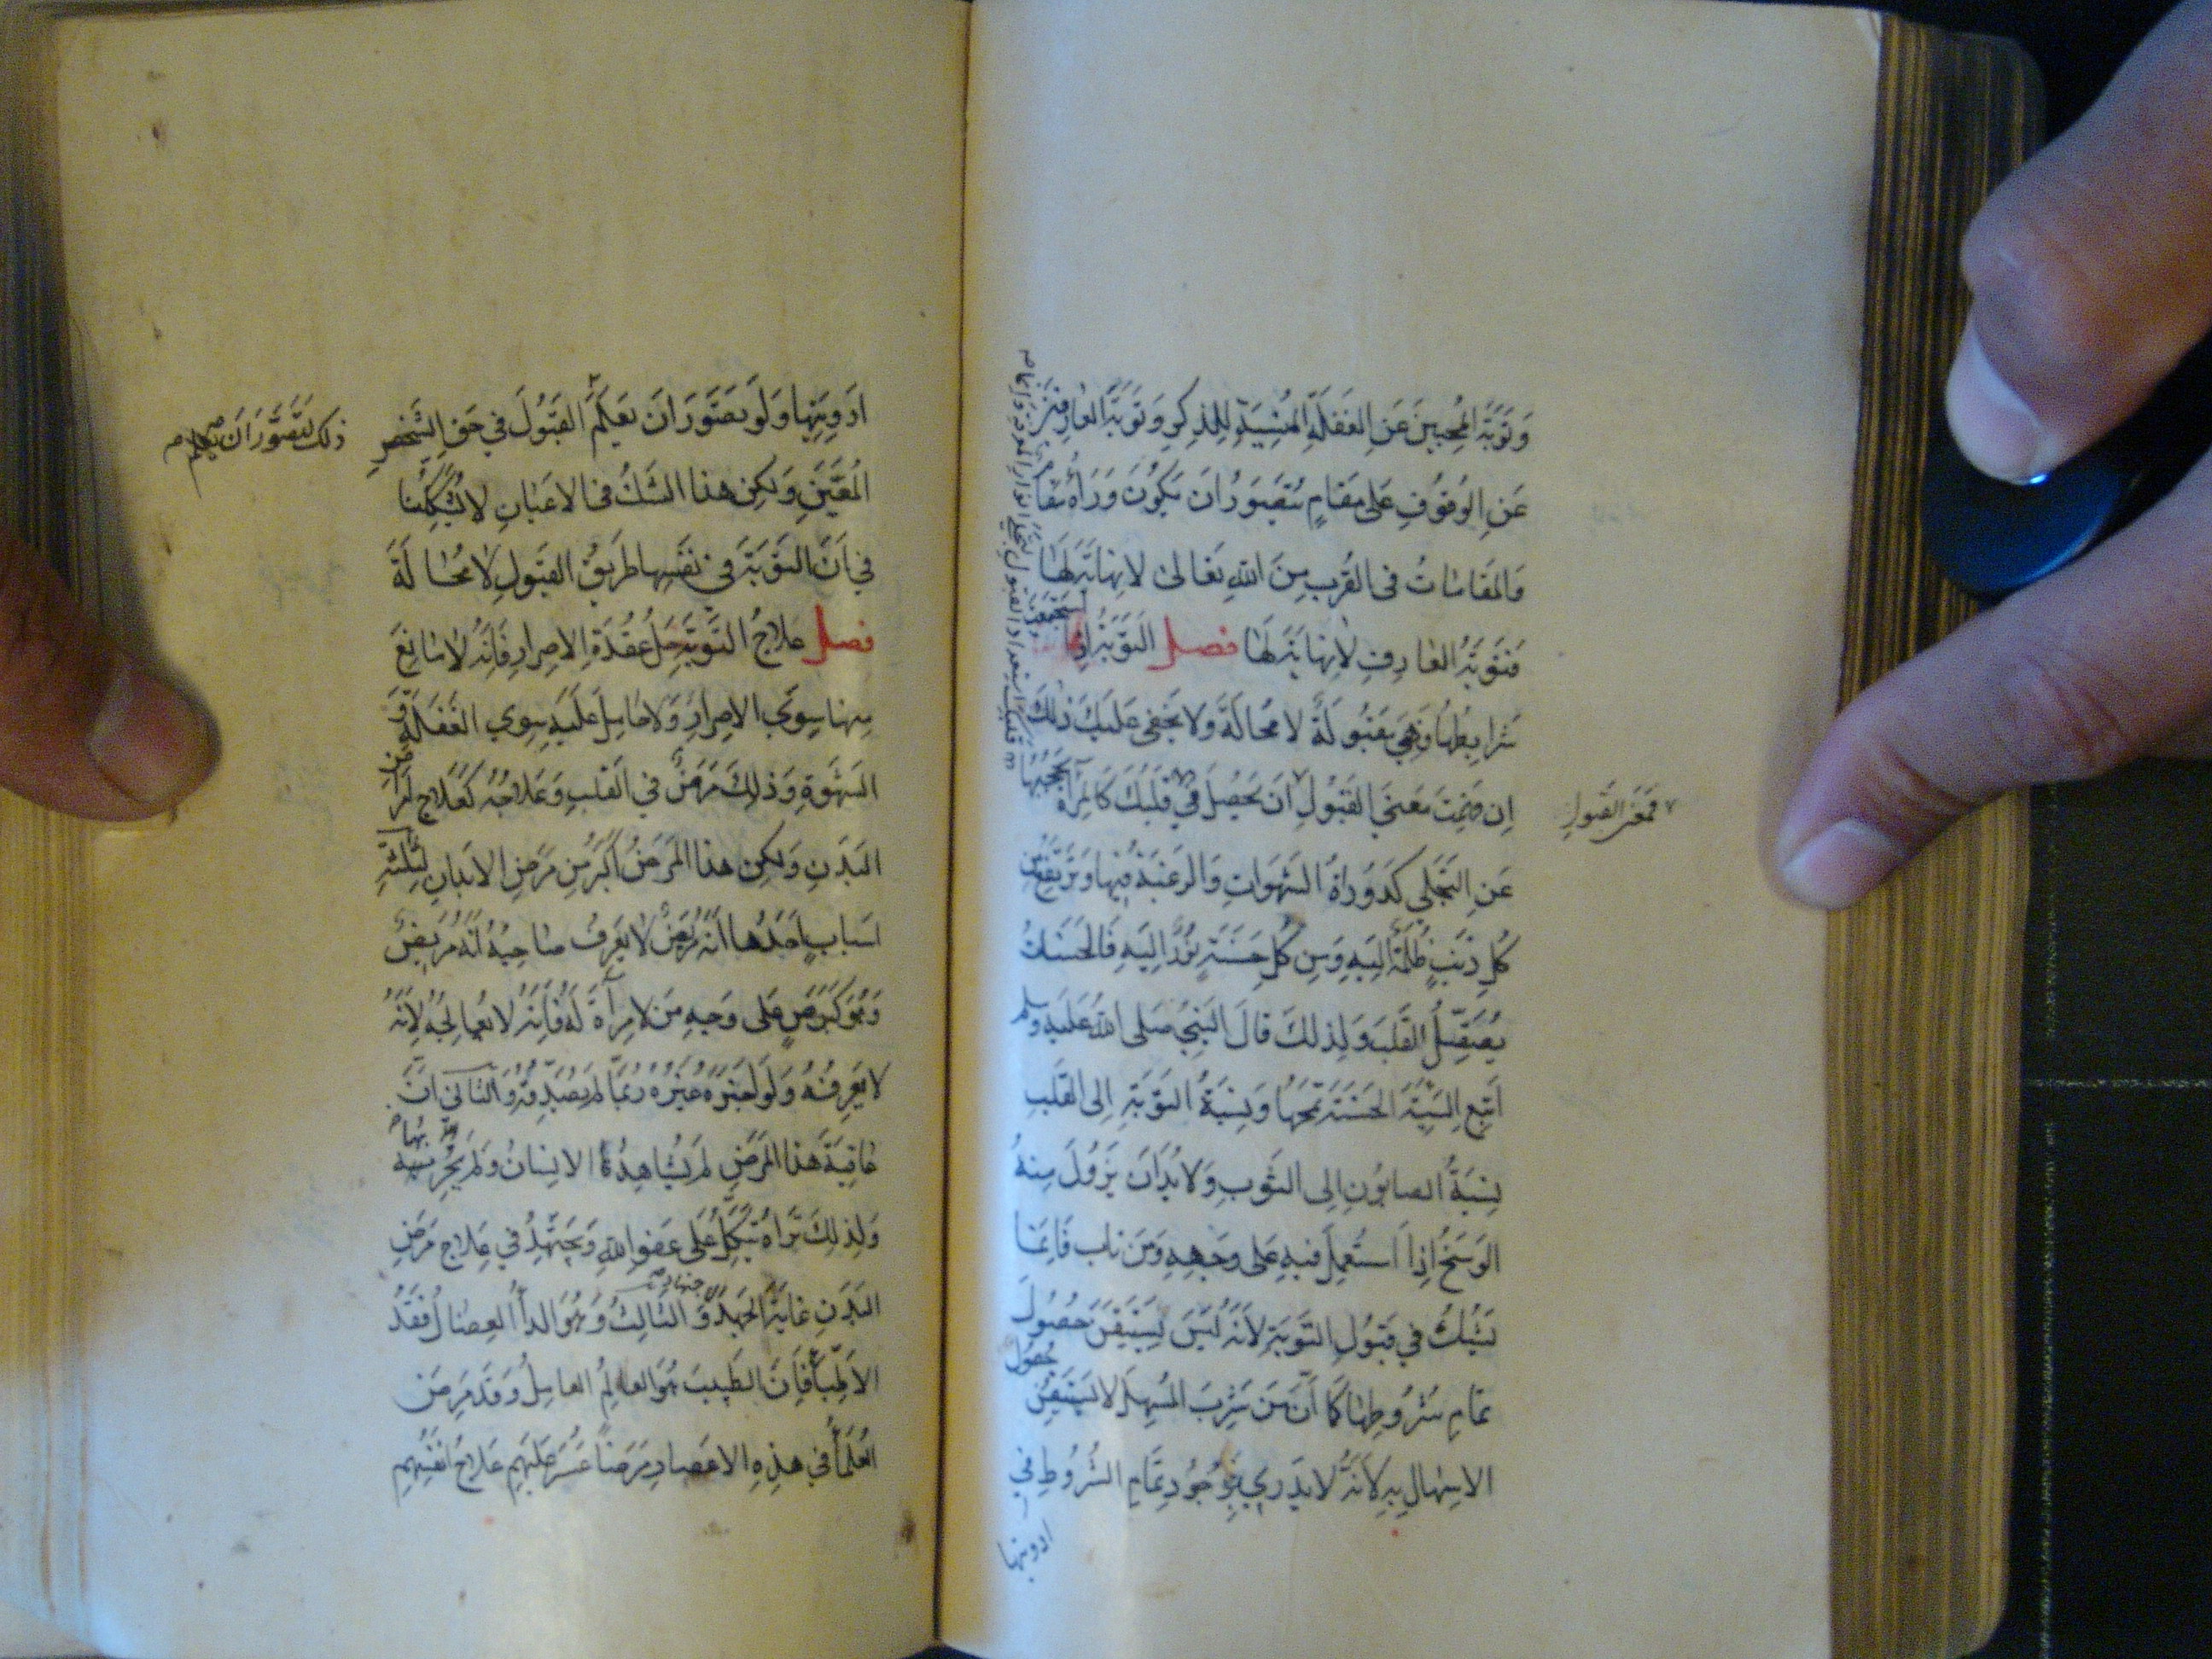 وَتَوبَةُ المُحِبينَ عَنِ الغَفلَةِ المُنْسِيَةِ لِلذِكرِ وَتَوبَةُ العارِفِينَ
عَنِ الوُقوُفِ عَلى مقَامٍ يُتَصَوَرُ اَن يَكُونَ وَرَاءَهُ مَقَامٌ
وَالمَقَامَاتُ فى القُرب مِنَ اللهِ تعَالىٰ لا نِهَايَةَ لَهَا
فَتَوبَةُ العَارِفِ لا نِهَايَةَ لَهَا فصل التَوبَةُ اِذَا اسْتَجْمَعَتْ
شَرَايِطُهَا فَهِيَ مَقبُولَةٌ لا مَحَالَةَ وَلا يَخفى عَليكَ ذٰلِكَ
اِن فَهِمتَ مَعنىَ القَبُولِ اَن يَحصُلَ فِي قَلبِكَ كَالمِرآةِ يَحْجُبُهَا
فمَعْنىَ القَبُولِ
عَنِ التَجَلّي كدُورَاةُ الشَهَوَاتِ وَالرَغبَةُ فِيها وَيَرتَفِعُ مِن
كُلِ ذَنبٍ ظُلمَةٌ اِلَيهِ وَمِن كُلِ حَسَنَةٍ نُورٌ اِلَيهِ فَالحَسَنَاتُ
يُصَقِّلُ القَلبَ وَلِذلِكَ قالَ النَبِيُ صَلى اللهُ عَليهِ وسلم
اَتبِعِ السَيِّئَةَ الحَسَنَةَ تَمحُهَا وَنِسبَةُ التوَبَةِ اِلى القَلبِ
نِسبَةُ الصابُونِ اِلى الثَوبِ وَلا بُدَ اَن يَزوُلَ مِنهُ
الوَسَخُ اِذاَ استُعمِلَ فيهِ عَلى وجَهِهِ وَمَن تاب فَاِنَما
يَشُكُ في قبَوُلِ التَوَبَةِ لاَنَهُ لَيسَ يَستَيقِنُ حصُولَ
تمامِ شرُوطِهَا كمَا اَنَّ مَن شَرِبَ المُسهِلَ لا يَستَيقِنُ حُصُولَ
الاِسهَالِ بِهِ لاَنَهُ لا يَدرِي بِوُجُودِ تَمَامِ الشُروُطِ في
ادويتها
اَدوِيَتِها وَلَو تصَوَّرَ اَن يَعلَمَ القَبُولَ في حَقِ الشَخصِ
ذلك لتَصَوَّرَ اَن يعلم صح
المُعَيَّنِ وَلكِن هذا الشَكُ في الاَعيَانِ لا يُشَكِّكُنا
في اَنَّ التَوَبَةَ في نَفسِها طرَيقُ القبَولِ لا مُحَالَةَ
فصل عِلاجُ التَّوبَةِ حَلُ عُقدَةِ الاِصرارِ فَاِنَهُ لا مَانِعَ
مِنها سِوَى الاِصرارِ وَلا حَامِلَ عَلَيهِ سِوى الغَفلَةِ وَ
الشَهَوةِ وَذلِكَ مَرَضٌ في القَلبِ وَعِلاجُهُ كَعِلاجِ اَمرَاضِ
البَدَنِ وَلكِن هذا المَرَضُ اَكبَرُ مِن مَرَضِ الاَبدَانِ لِثَلثَةِ
اَسبَابٍ اَحَدُها اَنَهُ مَرَضٌ لا يَعرِفُ صَاحِبُهُ اَنَهُ مَرِيضٌ
وَهُوَ كَبَرَصٍ عَلى وَجهِ مَن لا مِرآةَ لَهُ فَاِنَهُ لا يُعالِجُهُ لِاَنَهُ
لا يَعرِفُهُ وَلَو اَخبَرَهُ غَيرُهُ رُبمَا لَم يُصَدِّقهُ وَالثانى اَنَّ
عَاقِبَةَ هذا المَرَضِ لَم يُشَاهِدهُ الاِنسَانُ وَلَم يُجَرِّبهَا
وَلِذلِكَ تَرَاهُ يَتَّكِلُ عَلى عَفوِ اللهِ وَيَجتَهِدُ في عِلاجِ مَرَضِ
البَدَنِ غَايَةَ الجَهدِ وَ الثَالِثُ وَهُوَ الداءُ العِضَالُ فَقدُ
الاَطِبّاءِ فَاِنَّ الطَبِيبَ هُوَ العالِمُ العامِلُ وَقَد مَرِضَ
العُلَمَاءُ في هذِهِ الاَعصارِ مَرَضاً عَسُرَ عَلَيهِم عِلاجُ اَنفُسِهِم